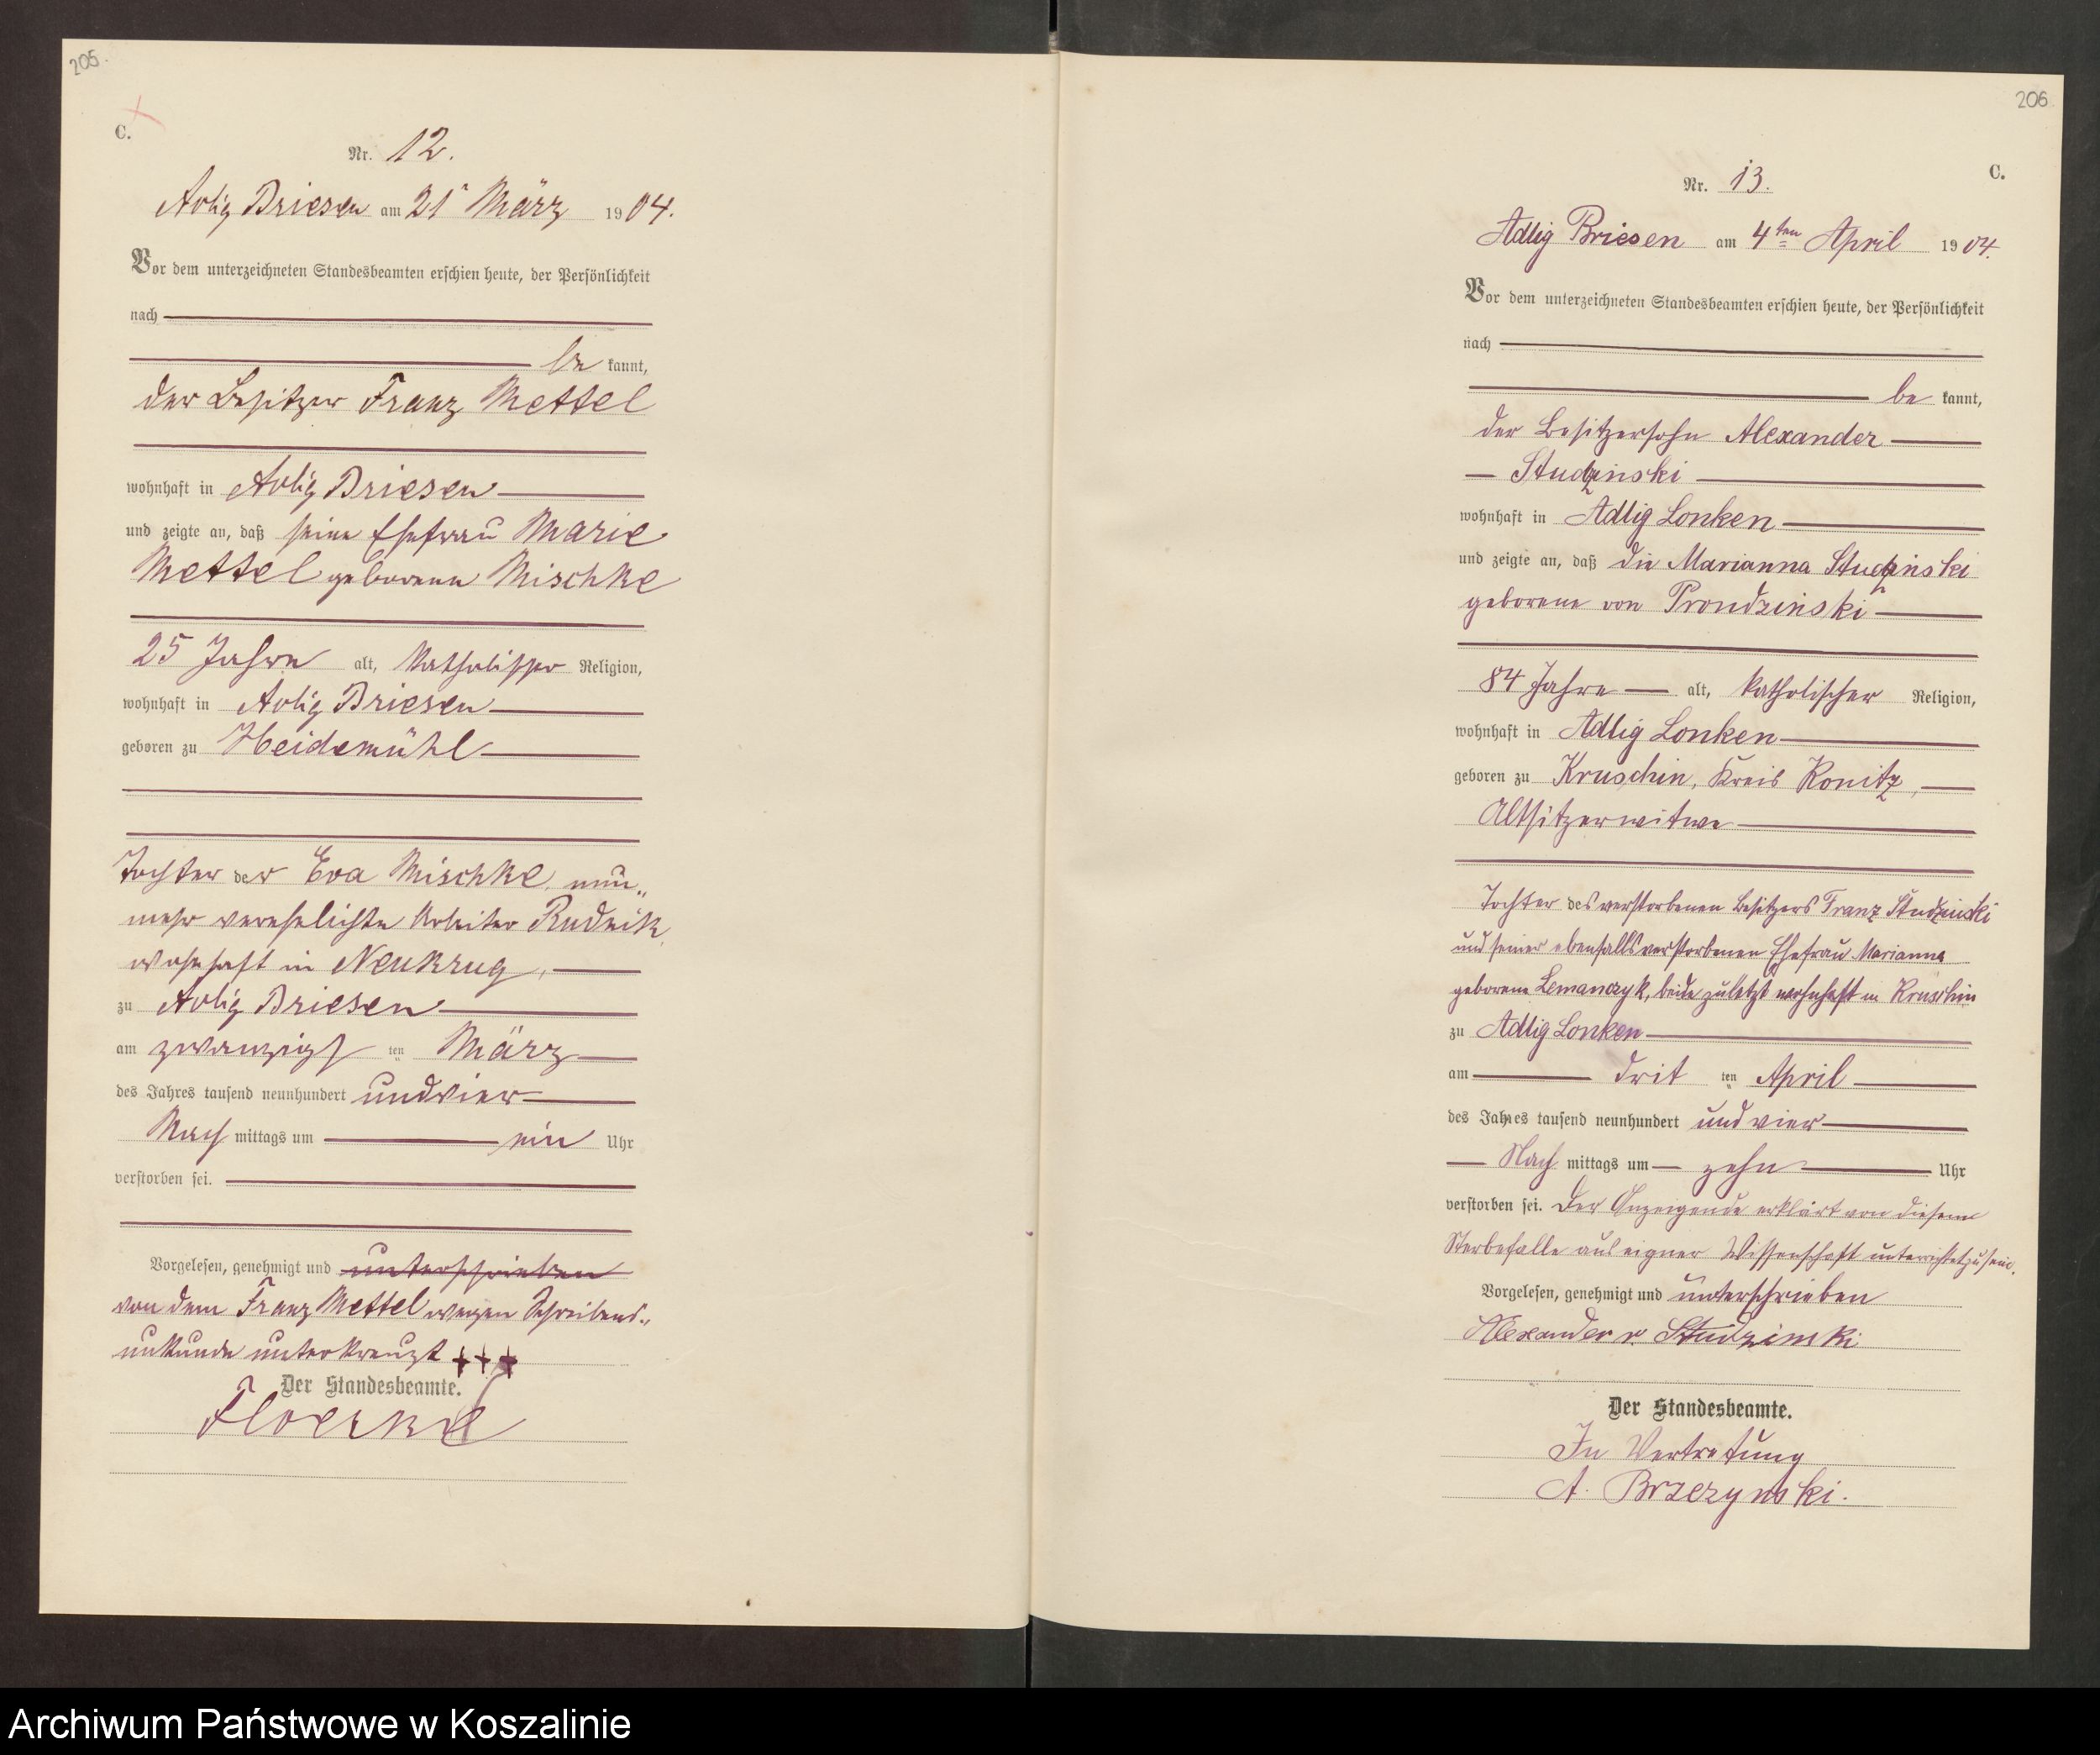 205.
C.
Nr. 12.
Adlig Briesen am 21t März 1904.
Vor dem unterzeichneten Standesbeamten erschien heute, der Persönlichkeit
nach
be kannt,
der Besitzer Franz Mettel
wohnhaft in Adlig Briesen
und zeigte an, daß seine Ehefrau Marie
Mettel geborene Mischke
25 Jahre alt, katholischer Religion,
wohnhaft in Adlig Briesen
geboren zu Heidemühl
Tochter der Eva Mischke, nun„
mehr verehelichte Arbeiter Rudnik,
wohnhaft in Neukrug,
zu Adlig Briesen
am zwanzigs ten März
des Jahres tausend neunhundert undvier
Nach mittags um ein Uhr
verstorben sei.
Vorgelesen, genehmigt und unterschrieben
von dem Franz Mettel wegen Schreibens„
unkunde unterkreuzt +++
Der Standesbeamte.
Floerke
206
C.
Nr. 13.
Adlig Briesen am 4ten April 1904.
Vor dem unterzeichneten Standesbeamten erschien heute, der Persönlichkeit
nach
be kannt,
der Besitzersohn Alexander
Studzinski
wohnhaft in Adlig Lonken
und zeigte an, daß die Marianna Studzinski
geborene von Prondzinski
84 Jahre alt, katholischer Religion,
wohnhaft in Adlig Lonken
geboren zu Kruschin, Kreis Konitz,
Altsitzerwitwe
Tochter des verstorbenen Besitzers Franz Studzinski
und seiner ebenfalls verstorbenen Ehefrau Marianna
geborene Lemanczyk, beide zuletzt wohnhaft in Kruschin
zu Adlig Lonken
am drit ten April
des Jahres tausend neunhundert und vier
Nach mittags um zehn Uhr
verstorben sei. Der Anzeigende erklärt von diesem
Sterbefalle aus eigner Wissenschaft unterrichtet zu sein.
Vorgelesen, genehmigt und unterschrieben
Alexander v. Studzinski
Der Standesbeamte.
In Vertretung
A. Brzezynski.
Archiwum Państwowe w Koszalinie